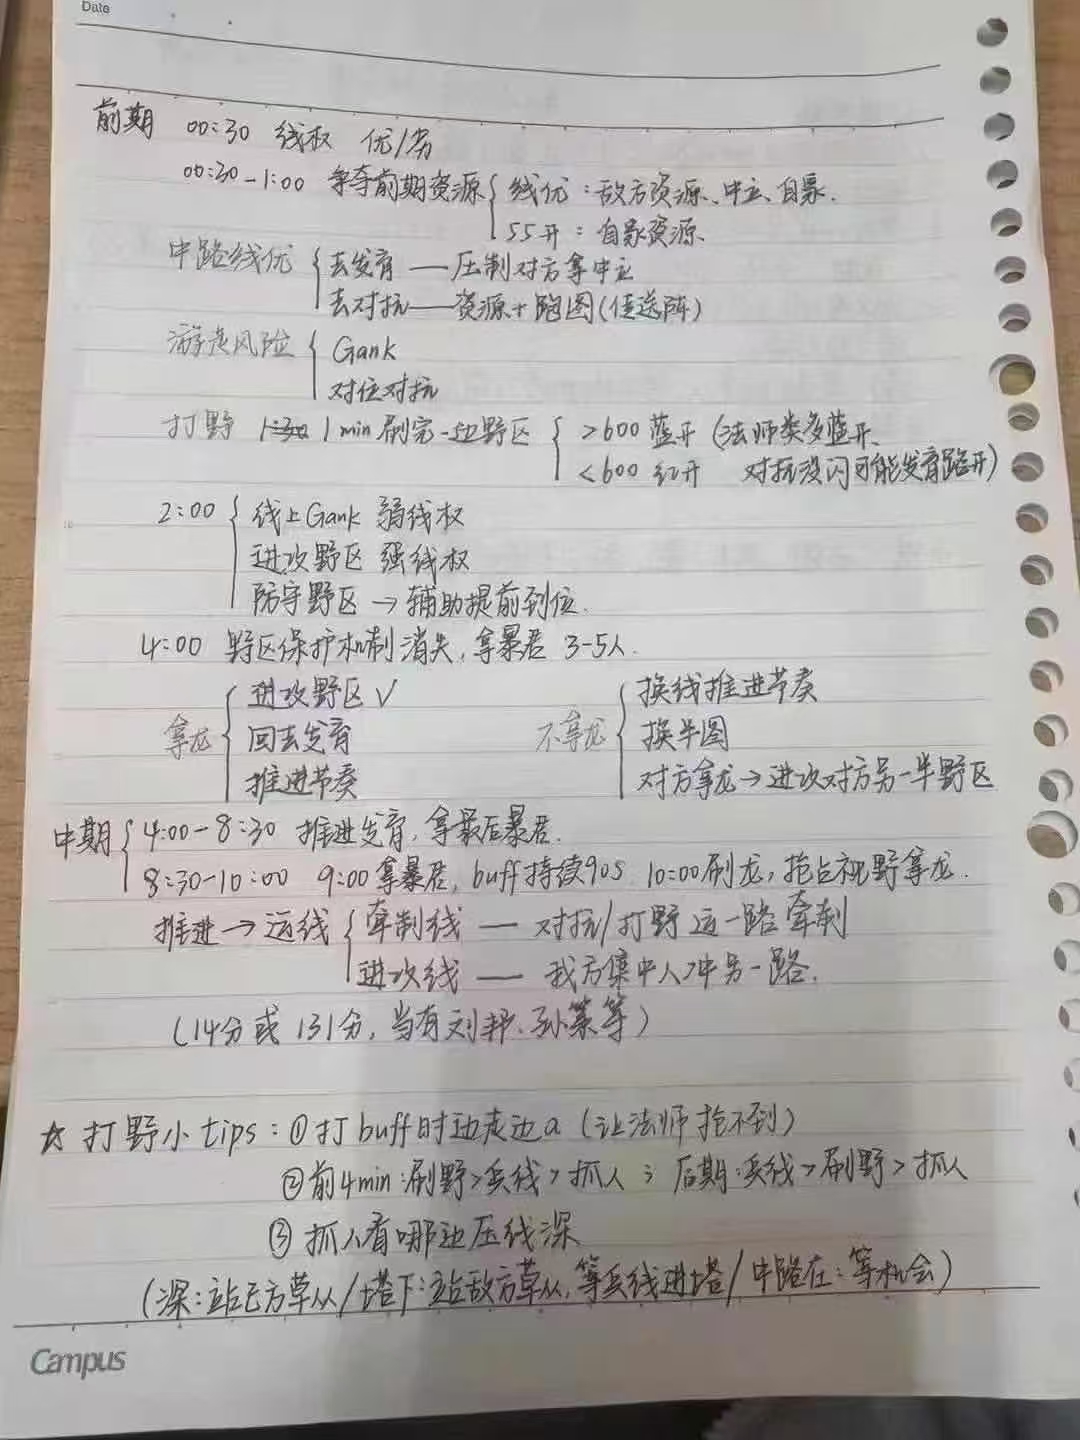 Date
前期 00:30 线权 优/劣
00:30-1:00 争夺前期资源 { 线优：敌方资源、中立、自家.
55开：自家资源.
中路线优 { 去发育 — 压制对方拿中立
去对抗 — 资源+跑图(传送阵)
游走风险 { Gank
对位对抗
打野 1:30 1min刷完一边野区 { >600 蓝开 (法师类多蓝开、
<600 红开 对抗没闪可能发育路开)
2:00 { 线上Gank 弱线权
进攻野区 强线权
防守野区 → 辅助提前到位.
4:00 野区保护机制消失, 拿暴君 3-5人.
拿龙 { 进攻野区 √
回去发育
推进节奏
不拿龙 { 换线推进节奏
换半图
对方拿龙→进攻对方另一半野区
中期 { 4:00-8:30 推进发育, 拿最后暴君.
8:30-10:00 9:00拿暴君, buff持续90s 10:00刷龙, 抢占视野拿龙.
推进 → 运线 { 牵制线 — 对抗/打野运一路牵制
进攻线 — 我方集中人冲另一路.
(14分或131分, 当有刘邦、孙策等)
☆ 打野小tips: ①打buff时边走边a (让法师抢不到)
②前4min:刷野>兵线>抓人; 后期:兵线>刷野>抓人
③ 抓人看哪边压线深
(深:站己方草丛/塔下:站敌方草丛,等兵线进塔/中路在:等机会)
Campus